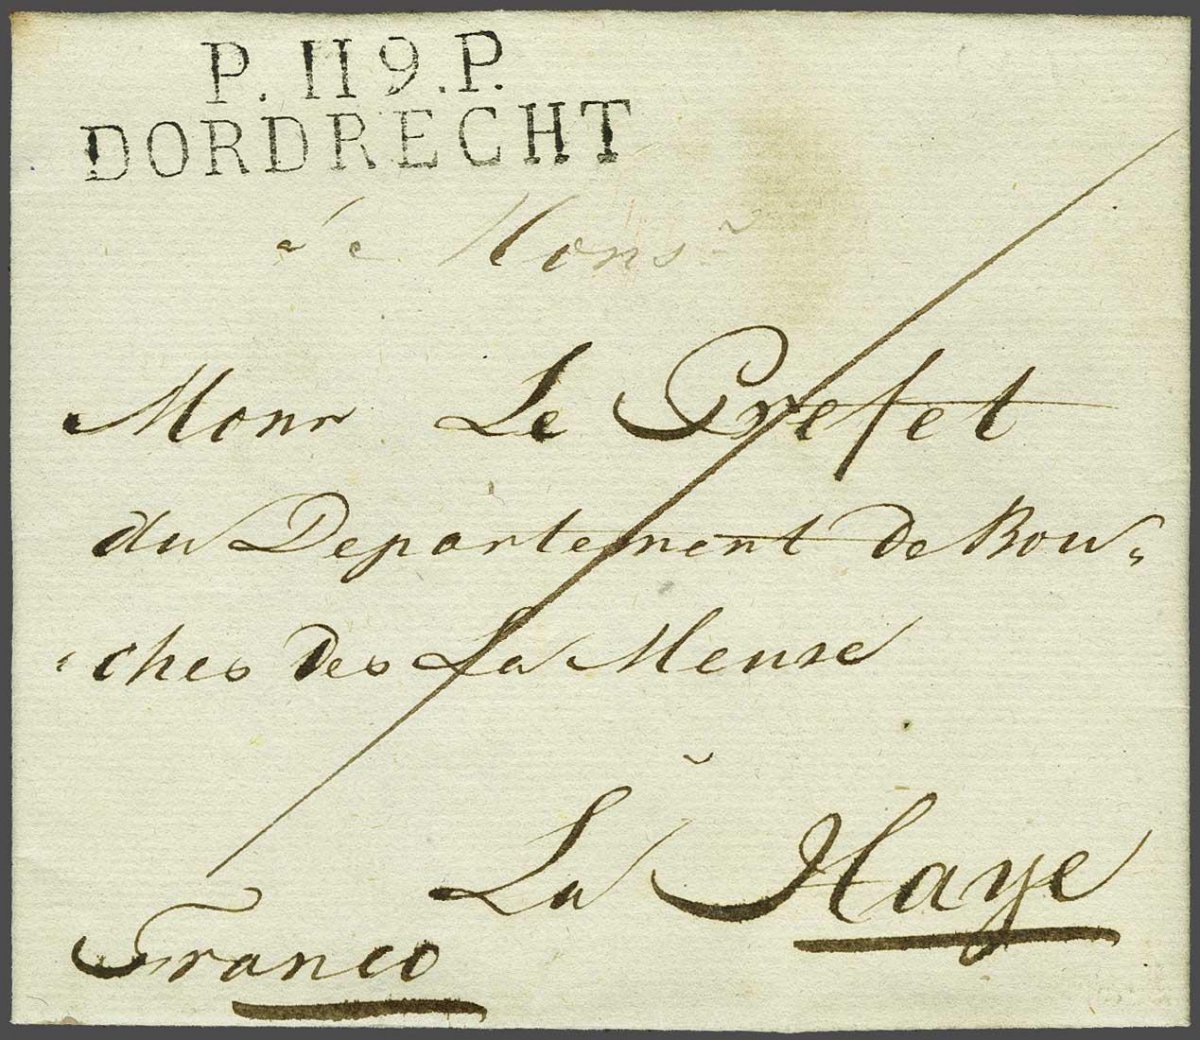 P. 119. P.
DORDRECHT
Monsr
Monr Le Prefet
du Departement de Bou-
ches des La Meuse
La Haye
Franco